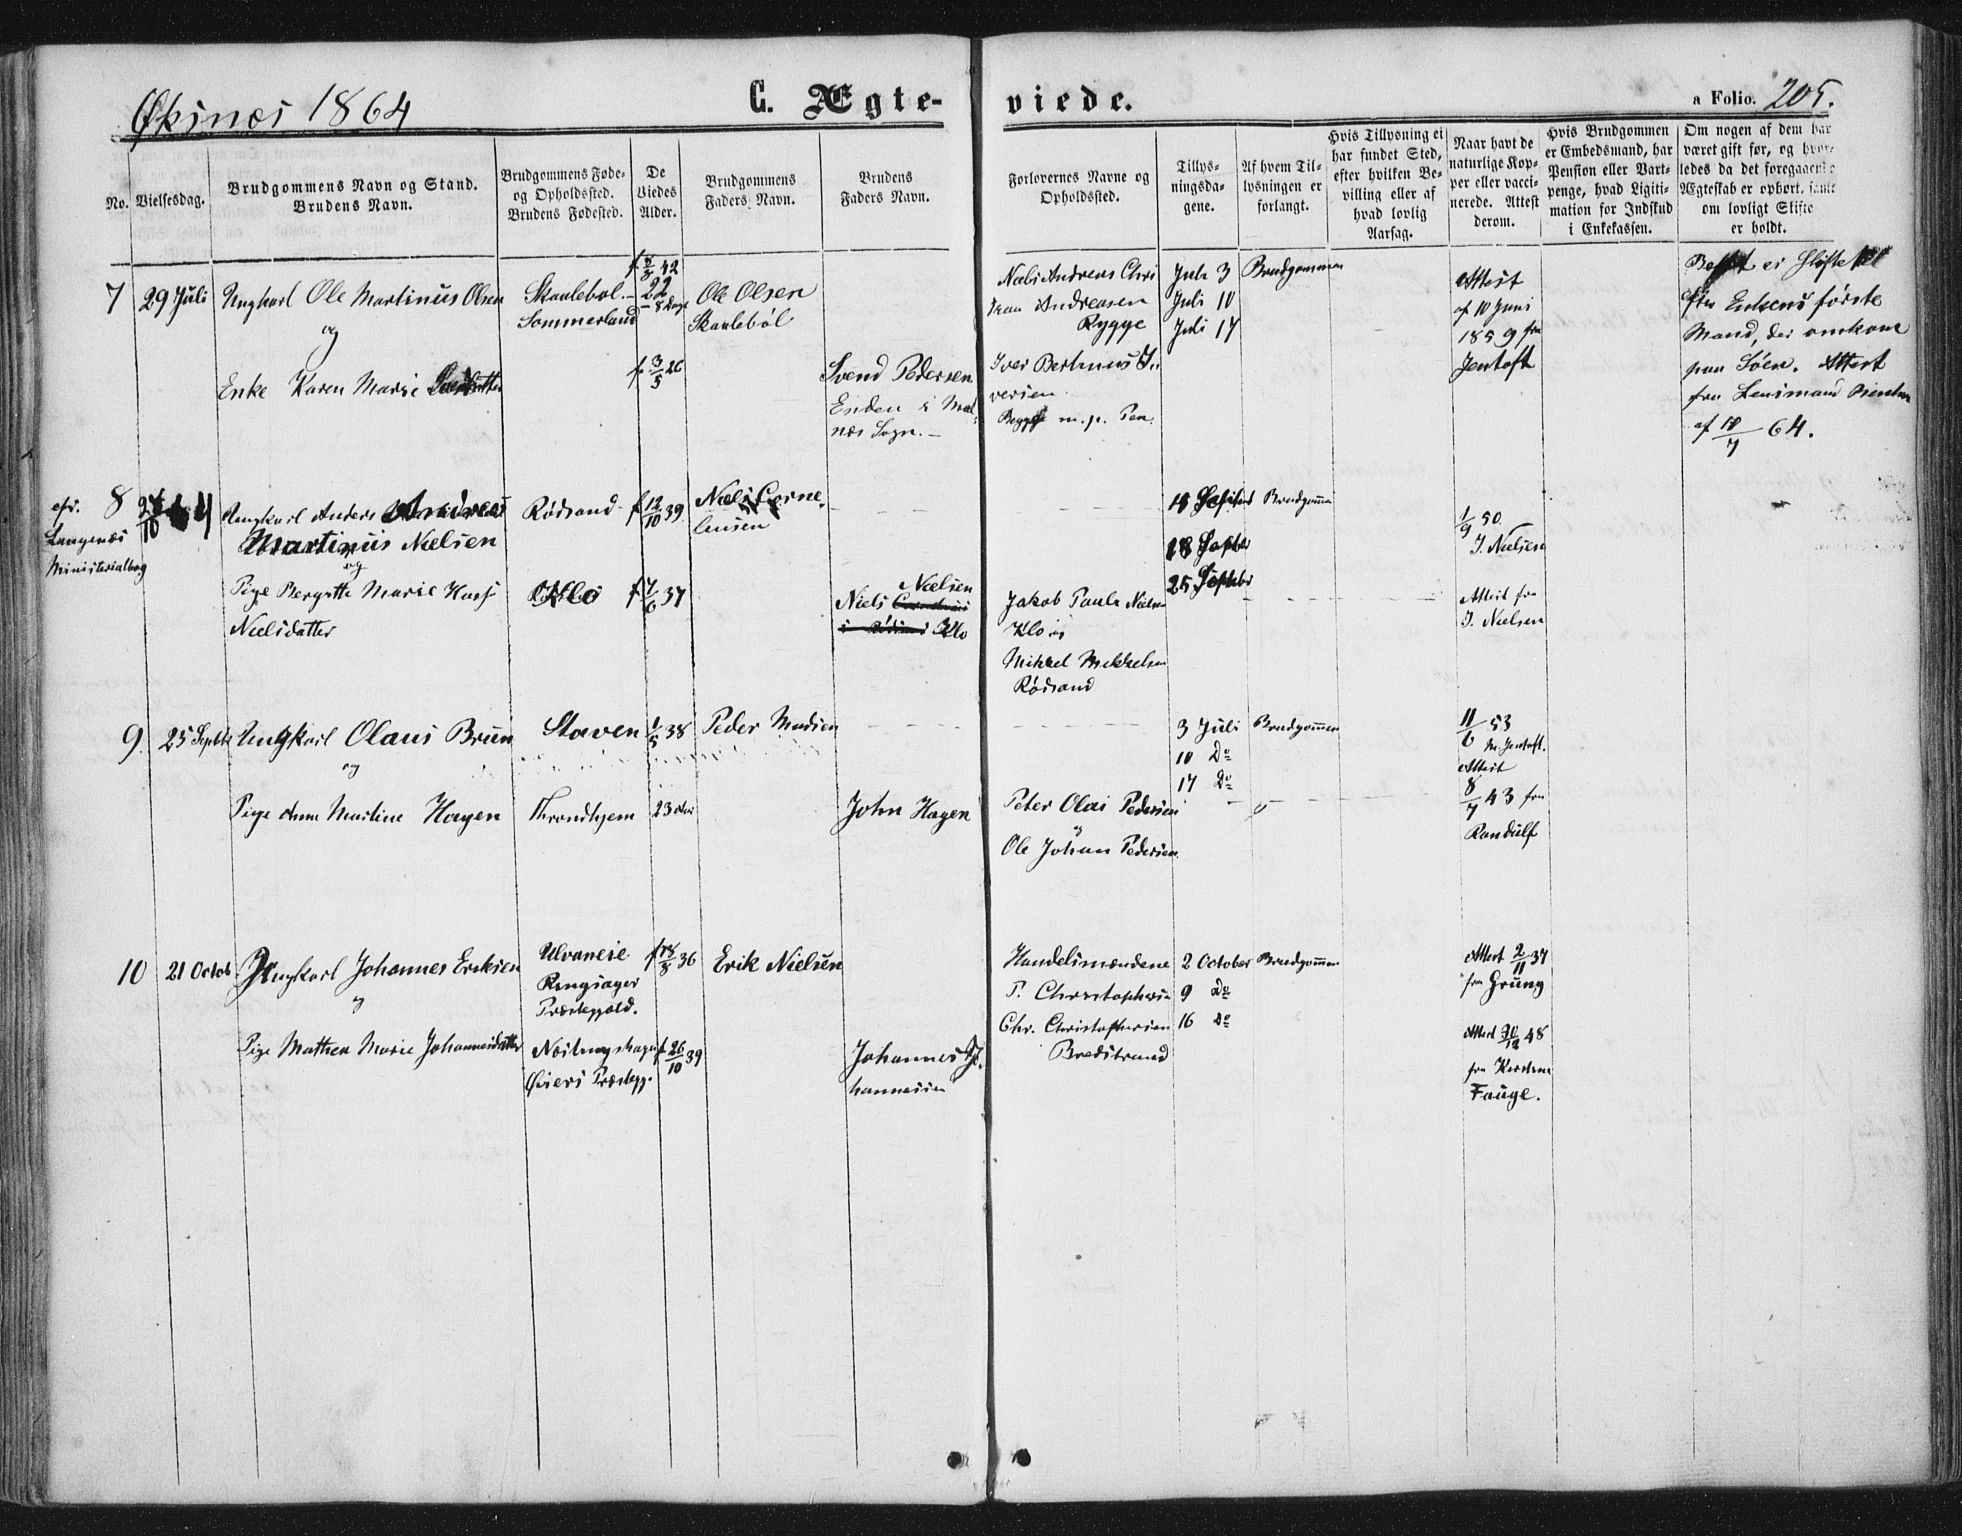 Øksnes 1864
C. Ægte-
viede.
a Folio. 205.
No.
Vielsesdag.
Brudgommens Navn og Stand.
Brudens Navn.
Brudgommens Føde-
og Opholdssted.
Brudens Fødested.
De
Viedes
Alder.
Brudgommens
Faders Navn.
Brudens
Faders Navn.
Forlovernes Navne og
Opholdssted.
Tillys-
ningsda-
gene.
Af hvem Til-
lysningen er
forlangt.
Hvis Tillysning ei
har fundet Sted,
efter hvilken Be-
villing eller af
hvad lovlig
Aarsag.
Naar havt de
naturlige Kop-
per eller vacci-
nerede. Attest
derom.
Hvis Brudgommen
er Embedsmand, har
Pension eller Vart-
penge, hvad Ligiti-
mation for Indskud
i Enkekassen.
Om nogen af dem har
været gift før, og hvor-
ledes da det foregaaende
Ægteskab er ophørt, samt
om lovligt Skifte
er holdt.
7
29 Juli
Ungkarl Ole Martinus Olsen
og
Enke Karen Marie
Skaulebøl
Sommerland
42
22
f 3/5 26
Ole Olsen
Skaulebøl
Svend Pedersen
Enden i Mal-
næs Sogn.
Niels Andreas Chri
Andreasen
Rygge
Iver
versen
m. p. Pen.
Juli 3
Juli 10
Juli 17
Brudgommen
Attest
af 10 Juni
1859 fra
Jentoft
ei
Enkens første
Mand, der omkom
paa Søen. Attest
fra Lensmand
64.
cfr.
Langenæs
Ministerialbog
8
Ungkarl Anders Andreas
Martinus Nielsen
og
Pige Bergitte Marie
Nielsdatter
Rødsand
Klo
f 12/10 39
37
Niels Corne-
liusen
Nielsen
Niels Cornelius
Klo
Jakob Paul Nielsen
Klo og
Mikkel Mikkelsen
Rødsand
18 Septbr
25 Septbr
Brudgommen
1/9 50
J. Nielsen
Attest fra
J. Nielsen
9
25 Septbr
Ungkarl Olaus Bruun
og
Pige Anna Martine Hagen
Staven
Throndhjem
1/5 38
23
Peder Madsen
John Hagen
Peter Olai Pedersen
og
Ole Johan Pedersen
3 Juli
10 Do
17 Do
Brudgommen
11/6 53
M. Jentoft.
Attest
8/7 43 fra
Randulf
10
21 Octob
Ungkarl Johannes Eriksen
og
Pige Mathea Marie Johannesdatter
Ringsager
Præstegjæld.
Øiers Præstegj.
36
f 26/10 39
Erik Nielsen
Johannes Jo-
hannessen
Handelsmændene
P. Christophersen
Chr. Christophersen
Bredstrand
2 October
9 Do
16 Do
Brudgommen
Attest 2/11 37
fra Grung
Attest 48
fra
Fauge.